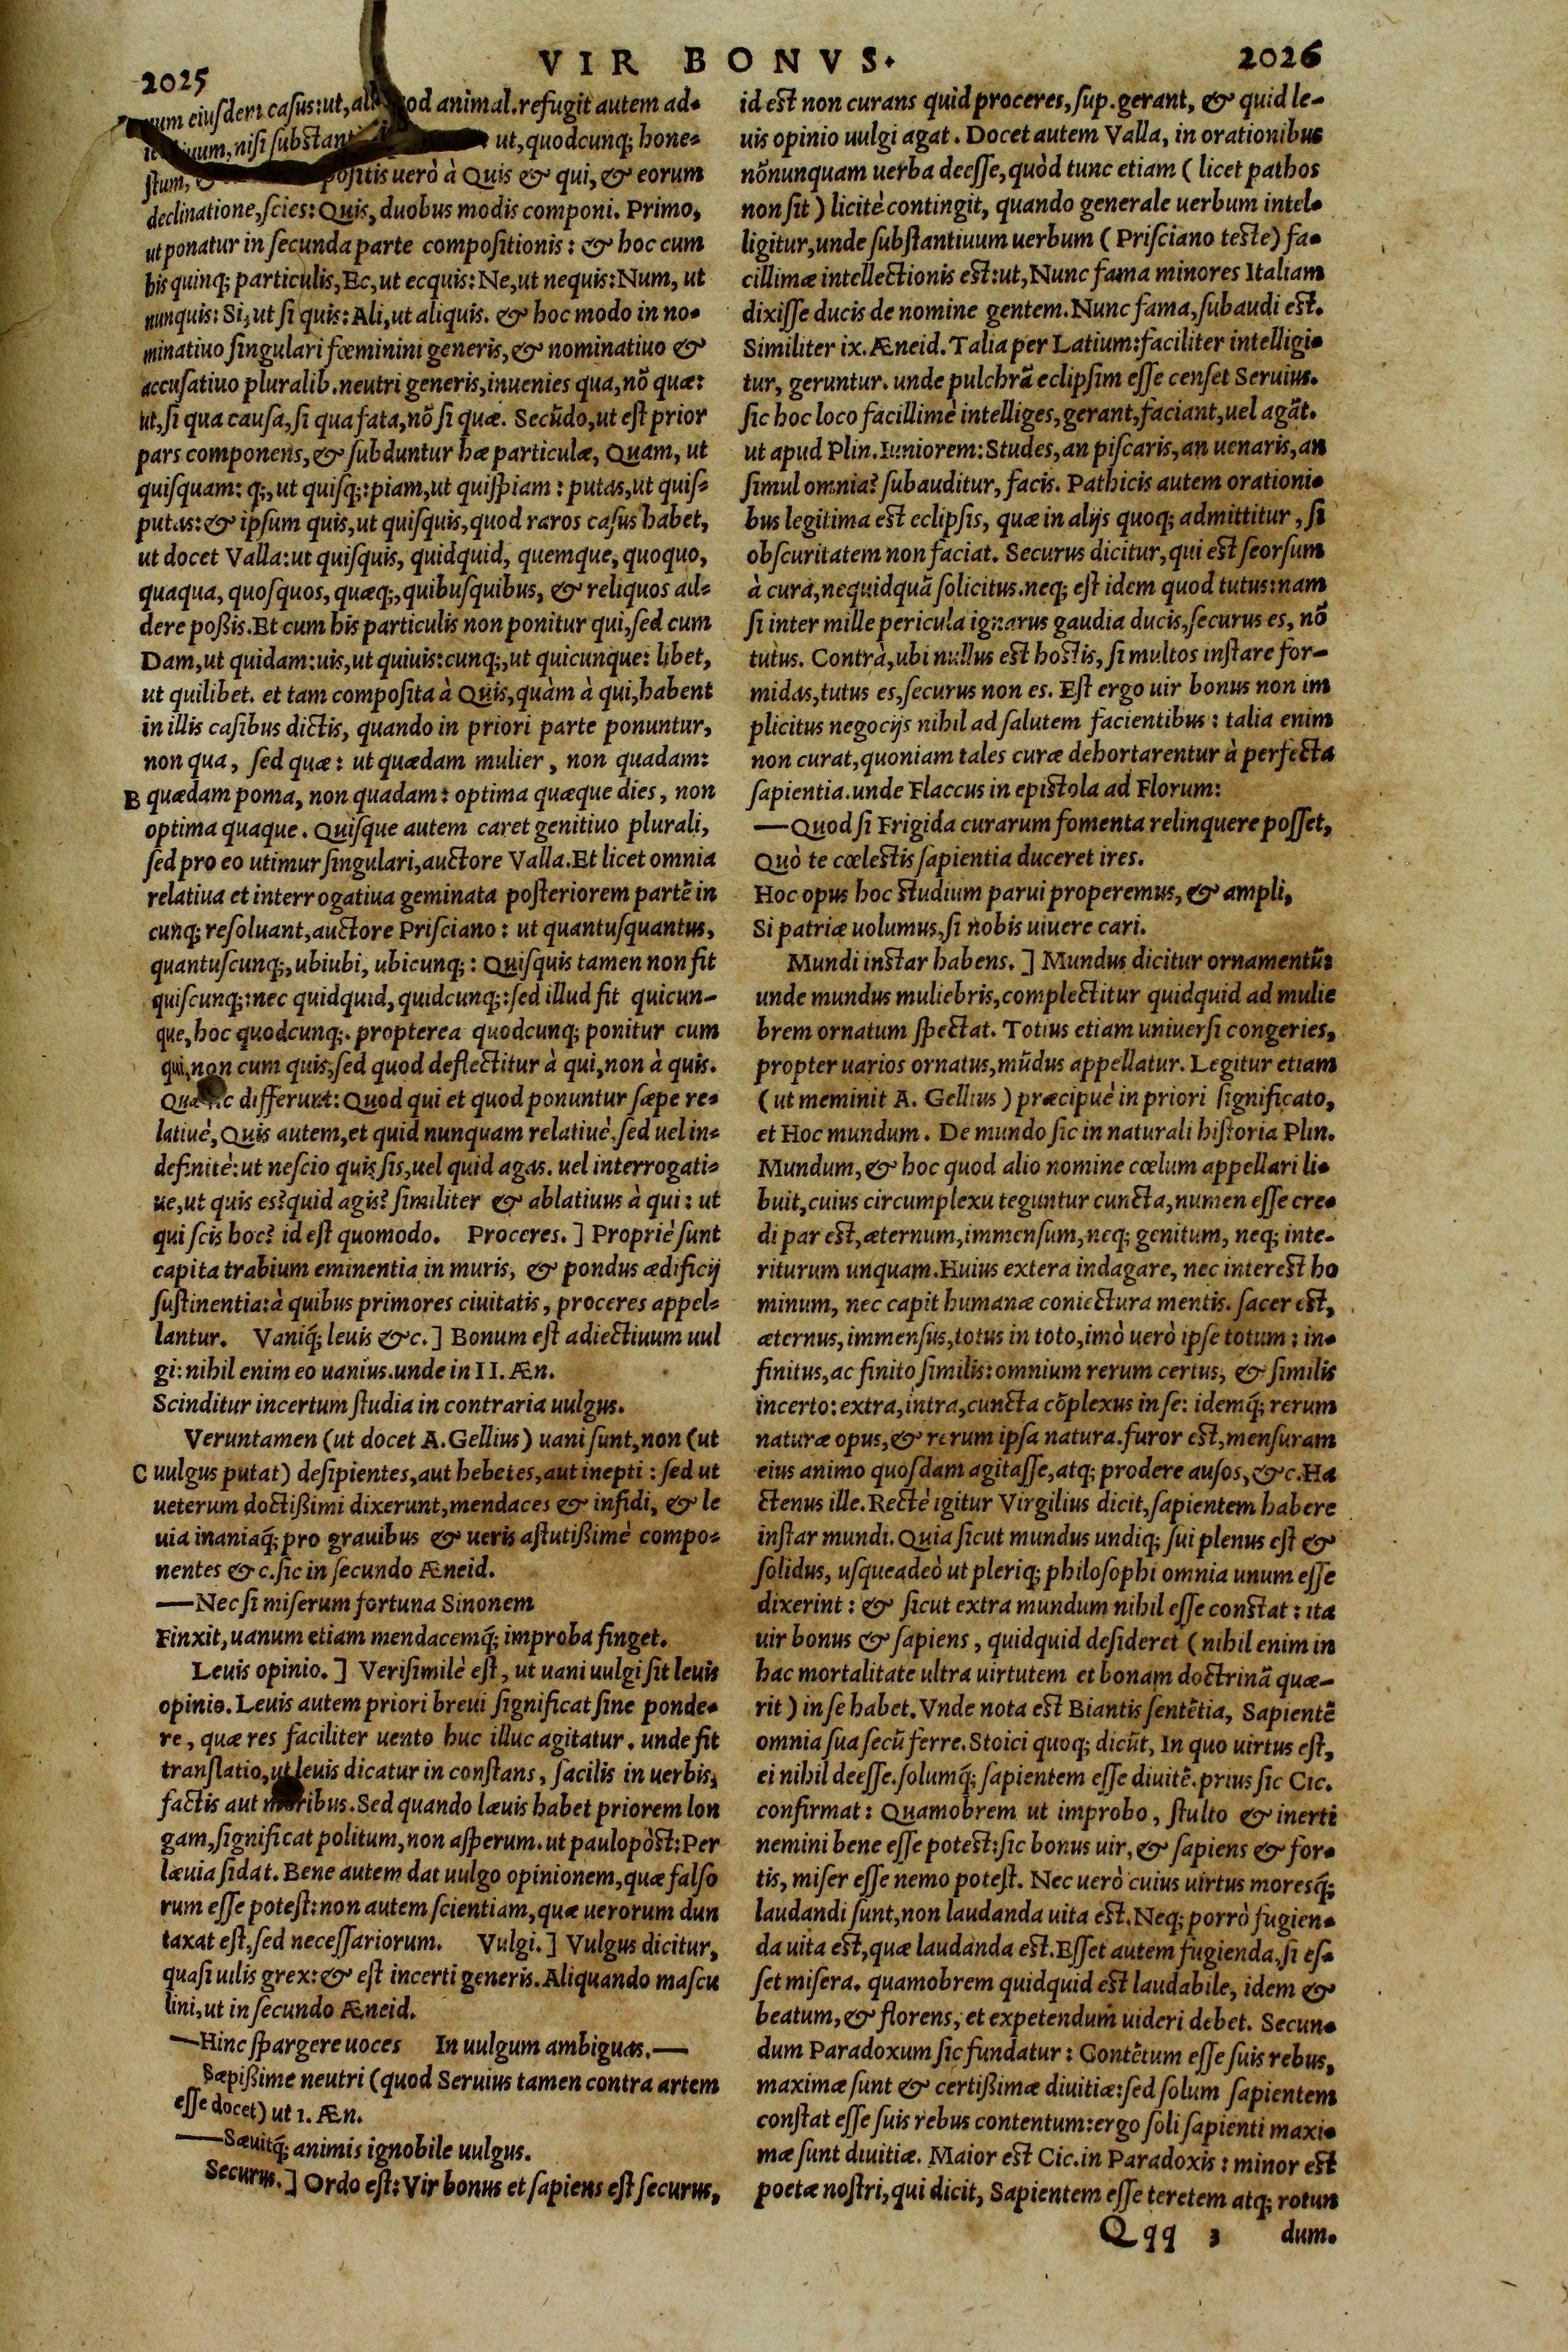 VIR BONVS.
2025
2026
num eiuſdem caſus: ut, al od animal. refugit autem ad-
uum, niſi ſubſtant ut, quodcunq; hone-
ſtum, & poſitis uerò à Quis & qui, & eorum
declinatione, ſcies: Quis, duobus modis componi. Primo,
ut ponatur in ſecunda parte compoſitionis: & hoc cum
his quinq; particulis, Ec, ut ecquis: Ne, ut nequis: Num, ut
nunquis: Si, ut ſi quis: Ali, ut aliquis. & hoc modo in no-
minatiuo ſingulari fœminini generis, & nominatiuo &
accuſatiuo pluralib. neutri generis, inuenies qua, nõ quæ:
ut, ſi qua cauſa, ſi qua fata, nõ ſi quæ. Secũdo, ut eſt prior
pars componens, & ſubduntur hæ particulæ, Quam, ut
quiſquam: q;, ut quiſq;: piam, ut quiſpiam: putas, ut quiſ-
putas: & ipſum quis, ut quiſquis, quod raros caſus habet,
ut docet Valla: ut quiſquis, quidquid, quemque, quoquo,
quaqua, quoſquos, quæq;, quibuſquibus, & reliquos ad-
dere poßis. Et cum his particulis non ponitur qui, ſed cum
Dam, ut quidam: uis, ut quiuis: cunq;, ut quicunque: libet,
ut quilibet. et tam compoſita à Quis, quàm à qui, habent
in illis caſibus dictis, quando in priori parte ponuntur,
non qua, ſed quæ: ut quædam mulier, non quadam:
B quædam poma, non quadam: optima quæque dies, non
optima quaque. Quiſque autem caret genitiuo plurali,
ſed pro eo utimur ſingulari, auctore Valla. Et licet omnia
relatiua et interrogatiua geminata poſteriorem partẽ in
cunq; reſoluant, auctore Priſciano: ut quantuſquantus,
quantuſcunq;, ubiubi, ubicunq;: Quiſquis tamen non fit
quiſcunq;: nec quidquid, quidcunq;: ſed illud fit quicun-
que, hoc quodcunq;. propterea quodcunq; ponitur cum
qui, non cum quis, ſed quod deflectitur à qui, non à quis.
differunt: Quod qui et quod ponuntur ſæpe re-
latiuè, Quis autem, et quid nunquam relatiuè, ſed uel in-
definitè: ut neſcio quis ſis, uel quid agas. uel interrogati-
ue, ut quis es? quid agis? ſimiliter & ablatiuus à qui: ut
qui ſcis hoc? id eſt quomodo. Proceres.] Propriè ſunt
capita trabium eminentia in muris, & pondus ædificij
ſuſtinentia: à quibus primores ciuitatis, proceres appel-
lantur. Vaniq́; leuis &c.] Bonum eſt adiectiuum uul
gi: nihil enim eo uanius. unde in II. Æn.
Scinditur incertum ſtudia in contraria uulgus.
Veruntamen (ut docet A. Gellius) uani ſunt, non (ut
C uulgus putat) deſipientes, aut hebetes, aut inepti: ſed ut
ueterum doctißimi dixerunt, mendaces & infidi, & le
uia inaniaq́; pro grauibus & ueris aſtutißimè compo-
nentes &c. ſic in ſecundo Æneid.
—Nec ſi miſerum fortuna Sinonem
Finxit, uanum etiam mendacemq́; improba finget.
Leuis opinio.] Veriſimilè eſt, ut uani uulgi ſit leuis
opinio. Leuis autem priori breui ſignificat ſine ponde-
re, quæ res faciliter uento huc illuc agitatur. unde fit
tranſlatio, ut leuis dicatur in conſtans, facilis in uerbis,
factis aut moribus. Sed quando læuis habet priorem lon
gam, ſignificat politum, non aſperum. ut paulopòst: Per
læuia ſidat. Bene autem dat uulgo opinionem, quæ falſo
rum eſſe poteſt: non autem ſcientiam, quæ uerorum dun
taxat eſt, ſed neceſſariorum. Vulgi.] Vulgus dicitur,
quaſi uilis grex: & eſt incerti generis. Aliquando maſcu
lini, ut in ſecundo Æneid.
—Hinc ſpargere uoces In uulgum ambiguas.—
Sæpißime neutri (quod Seruius tamen contra artem
eſſe docet) ut 1. Æn.
—Sæuitq́; animis ignobile uulgus.
Securus.] Ordo eſt: Vir bonus et ſapiens eſt ſecurus,
id est non curans quid proceres, ſup. gerant, & quid le-
uis opinio uulgi agat. Docet autem Valla, in orationibus
nõnunquam uerba deeſſe, quòd tunc etiam (licet pathos
non ſit) licitè contingit, quando generale uerbum intel-
ligitur, unde ſubſtantiuum uerbum (Priſciano teste) fa-
cillimæ intellectionis est: ut, Nunc fama minores Italiam
dixiſſe ducis de nomine gentem. Nunc fama, ſubaudi est.
Similiter ix. Æneid. Talia per Latium: faciliter intelligi-
tur, geruntur. unde pulchrã eclipſim eſſe cenſet Seruius.
ſic hoc loco facillimè intelliges, gerant, faciant, uel agãt.
ut apud Plin. Iuniorem: Studes, an piſcaris, an uenaris, an
ſimul omnia? ſubauditur, facis. Pathicis autem orationi-
bus legitima est eclipſis, quæ in alijs quoq; admittitur, ſi
obſcuritatem non faciat. Securus dicitur, qui est ſeorſum
à cura, nequidquã ſolicitus. neq; eſt idem quod tutus: nam
ſi inter mille pericula ignarus gaudia ducis, ſecurus es, nõ
tutus. Contrà, ubi nullus est hostis, ſi multos inſtare for-
midas, tutus es, ſecurus non es. Eſt ergo uir bonus non im
plicitus negocijs nihil ad ſalutem facientibus: talia enim
non curat, quoniam tales curæ dehortarentur à perfecta
ſapientia. unde Flaccus in epistola ad Florum:
—Quod ſi Frigida curarum fomenta relinquere poſſet,
Quò te cœlestis ſapientia duceret ires.
Hoc opus hoc studium parui properemus, & ampli,
Si patriæ uolumus, ſi nobis uiuere cari.
Mundi instar habens.] Mundus dicitur ornamentũ:
unde mundus muliebris, complectitur quidquid ad mulie
brem ornatum ſpectat. Totius etiam uniuerſi congeries,
propter uarios ornatus, mũdus appellatur. Legitur etiam
(ut meminit A. Gellius) præcipuè in priori ſignificato,
et Hoc mundum. De mundo ſic in naturali hiſtoria Plin.
Mundum, & hoc quod alio nomine cœlum appellari li-
buit, cuius circumplexu teguntur cuncta, numen eſſe cre-
di par est, æternum, immenſum, neq; genitum, neq; inte-
riturum unquam. Huius extera indagare, nec interest ho
minum, nec capit humanæ coniectura mentis. ſacer est,
æternus, immenſus, totus in toto, imò uerò ipſe totum: in-
finitus, ac finito ſimilis: omnium rerum certus, & ſimilis
incerto: extra, intra, cuncta cõplexus in ſe: idemq́; rerum
naturæ opus, & rerum ipſa natura. furor est, menſuram
eius animo quoſdam agitaſſe, atq; prodere auſos, &c. Ha
ctenus ille. Rectè igitur Virgilius dicit, ſapientem habere
inſtar mundi. Quia ſicut mundus undiq; ſui plenus eſt &
ſolidus, uſqueadeò ut pleriq; philoſophi omnia unum eſſe
dixerint: & ſicut extra mundum nihil eſſe constat: ita
uir bonus & ſapiens, quidquid deſideret (nihil enim in
hac mortalitate ultra uirtutem et bonam doctrinã quæ-
rit) in ſe habet. Vnde nota est Biantis ſentẽtia, Sapientẽ
omnia ſua ſecũ ferre. Stoici quoq; dicũt, In quo uirtus eſt,
ei nihil deeſſe. ſolumq́; ſapientem eſſe diuitẽ. prius ſic Cic.
confirmat: Quamobrem ut improbo, ſtulto & inerti
nemini bene eſſe potest: ſic bonus uir, & ſapiens & for-
tis, miſer eſſe nemo poteſt. Nec uerò cuius uirtus moresq́;
laudandi ſunt, non laudanda uita est. Neq; porrò fugien-
da uita est, quæ laudanda est. Eſſet autem fugienda, ſi eſ-
ſet miſera. quamobrem quidquid est laudabile, idem &
beatum, & florens, et expetendum uideri debet. Secun-
dum Paradoxum ſic fundatur: Contẽtum eſſe ſuis rebus,
maximæ ſunt & certißimæ diuitiæ: ſed ſolum ſapientem
conſtat eſſe ſuis rebus contentum: ergo ſoli ſapienti maxi-
mæ ſunt diuitiæ. Maior est Cic. in Paradoxis: minor est
poetæ noſtri, qui dicit, Sapientem eſſe teretem atq; rotun
Qqq 3 dum.